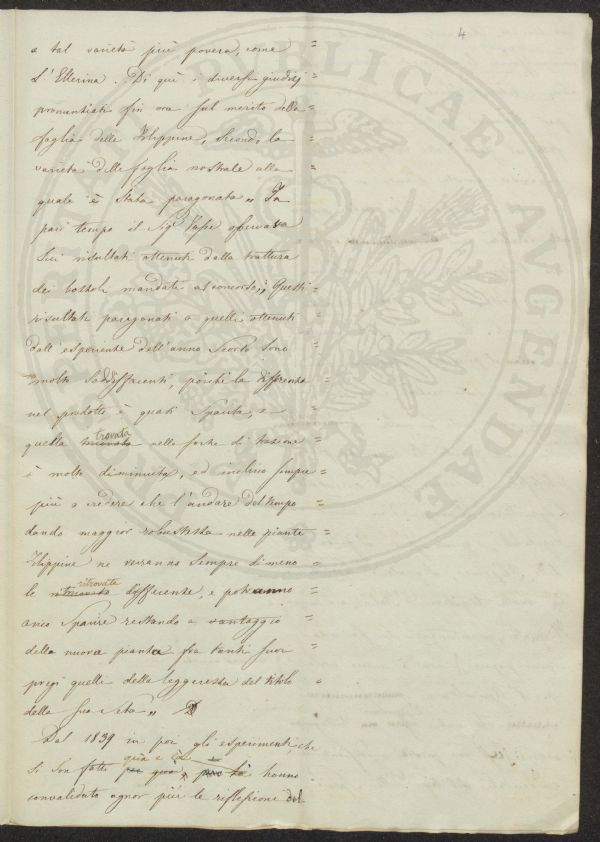 4
a tal varietà più povera, come =
L'Ellerina. Di qui i diversi giudizj
pronunziati fin ora sul merito della =
foglia delle Filippine, secondo la
varietà della foglia nostrale alla =
quale è stata paragonata „ In
pari tempo il Sigr osservava
sui risultati ottenuti dalla trattura
dei bozzoli mandati al concorso; „ Questi =
risultati paragonati a quelli ottenuti
dall'esperienze dell'anno scorso sono
molto soddisfacenti, poichè la differenza
nel prodotto è quasi sparita, e
quella trovata nelle forze di trazione =
è molto diminuita, ed inclino sempre =
più a credere che l'andare del tempo =
dando maggior robustezza nelle piante =
Filippine ne verranno sempre di meno =
le ritrovate differenze, e potranno =
anco sparire restando a vantaggio =
della nuova pianta fra tanti suoi =
pregi quelli della leggerezza del titolo =
della sua seta „
Dal 1839 in poi gli esperimenti, che
si son fatti qua e là hanno
convalidato ognor più le riflessione del